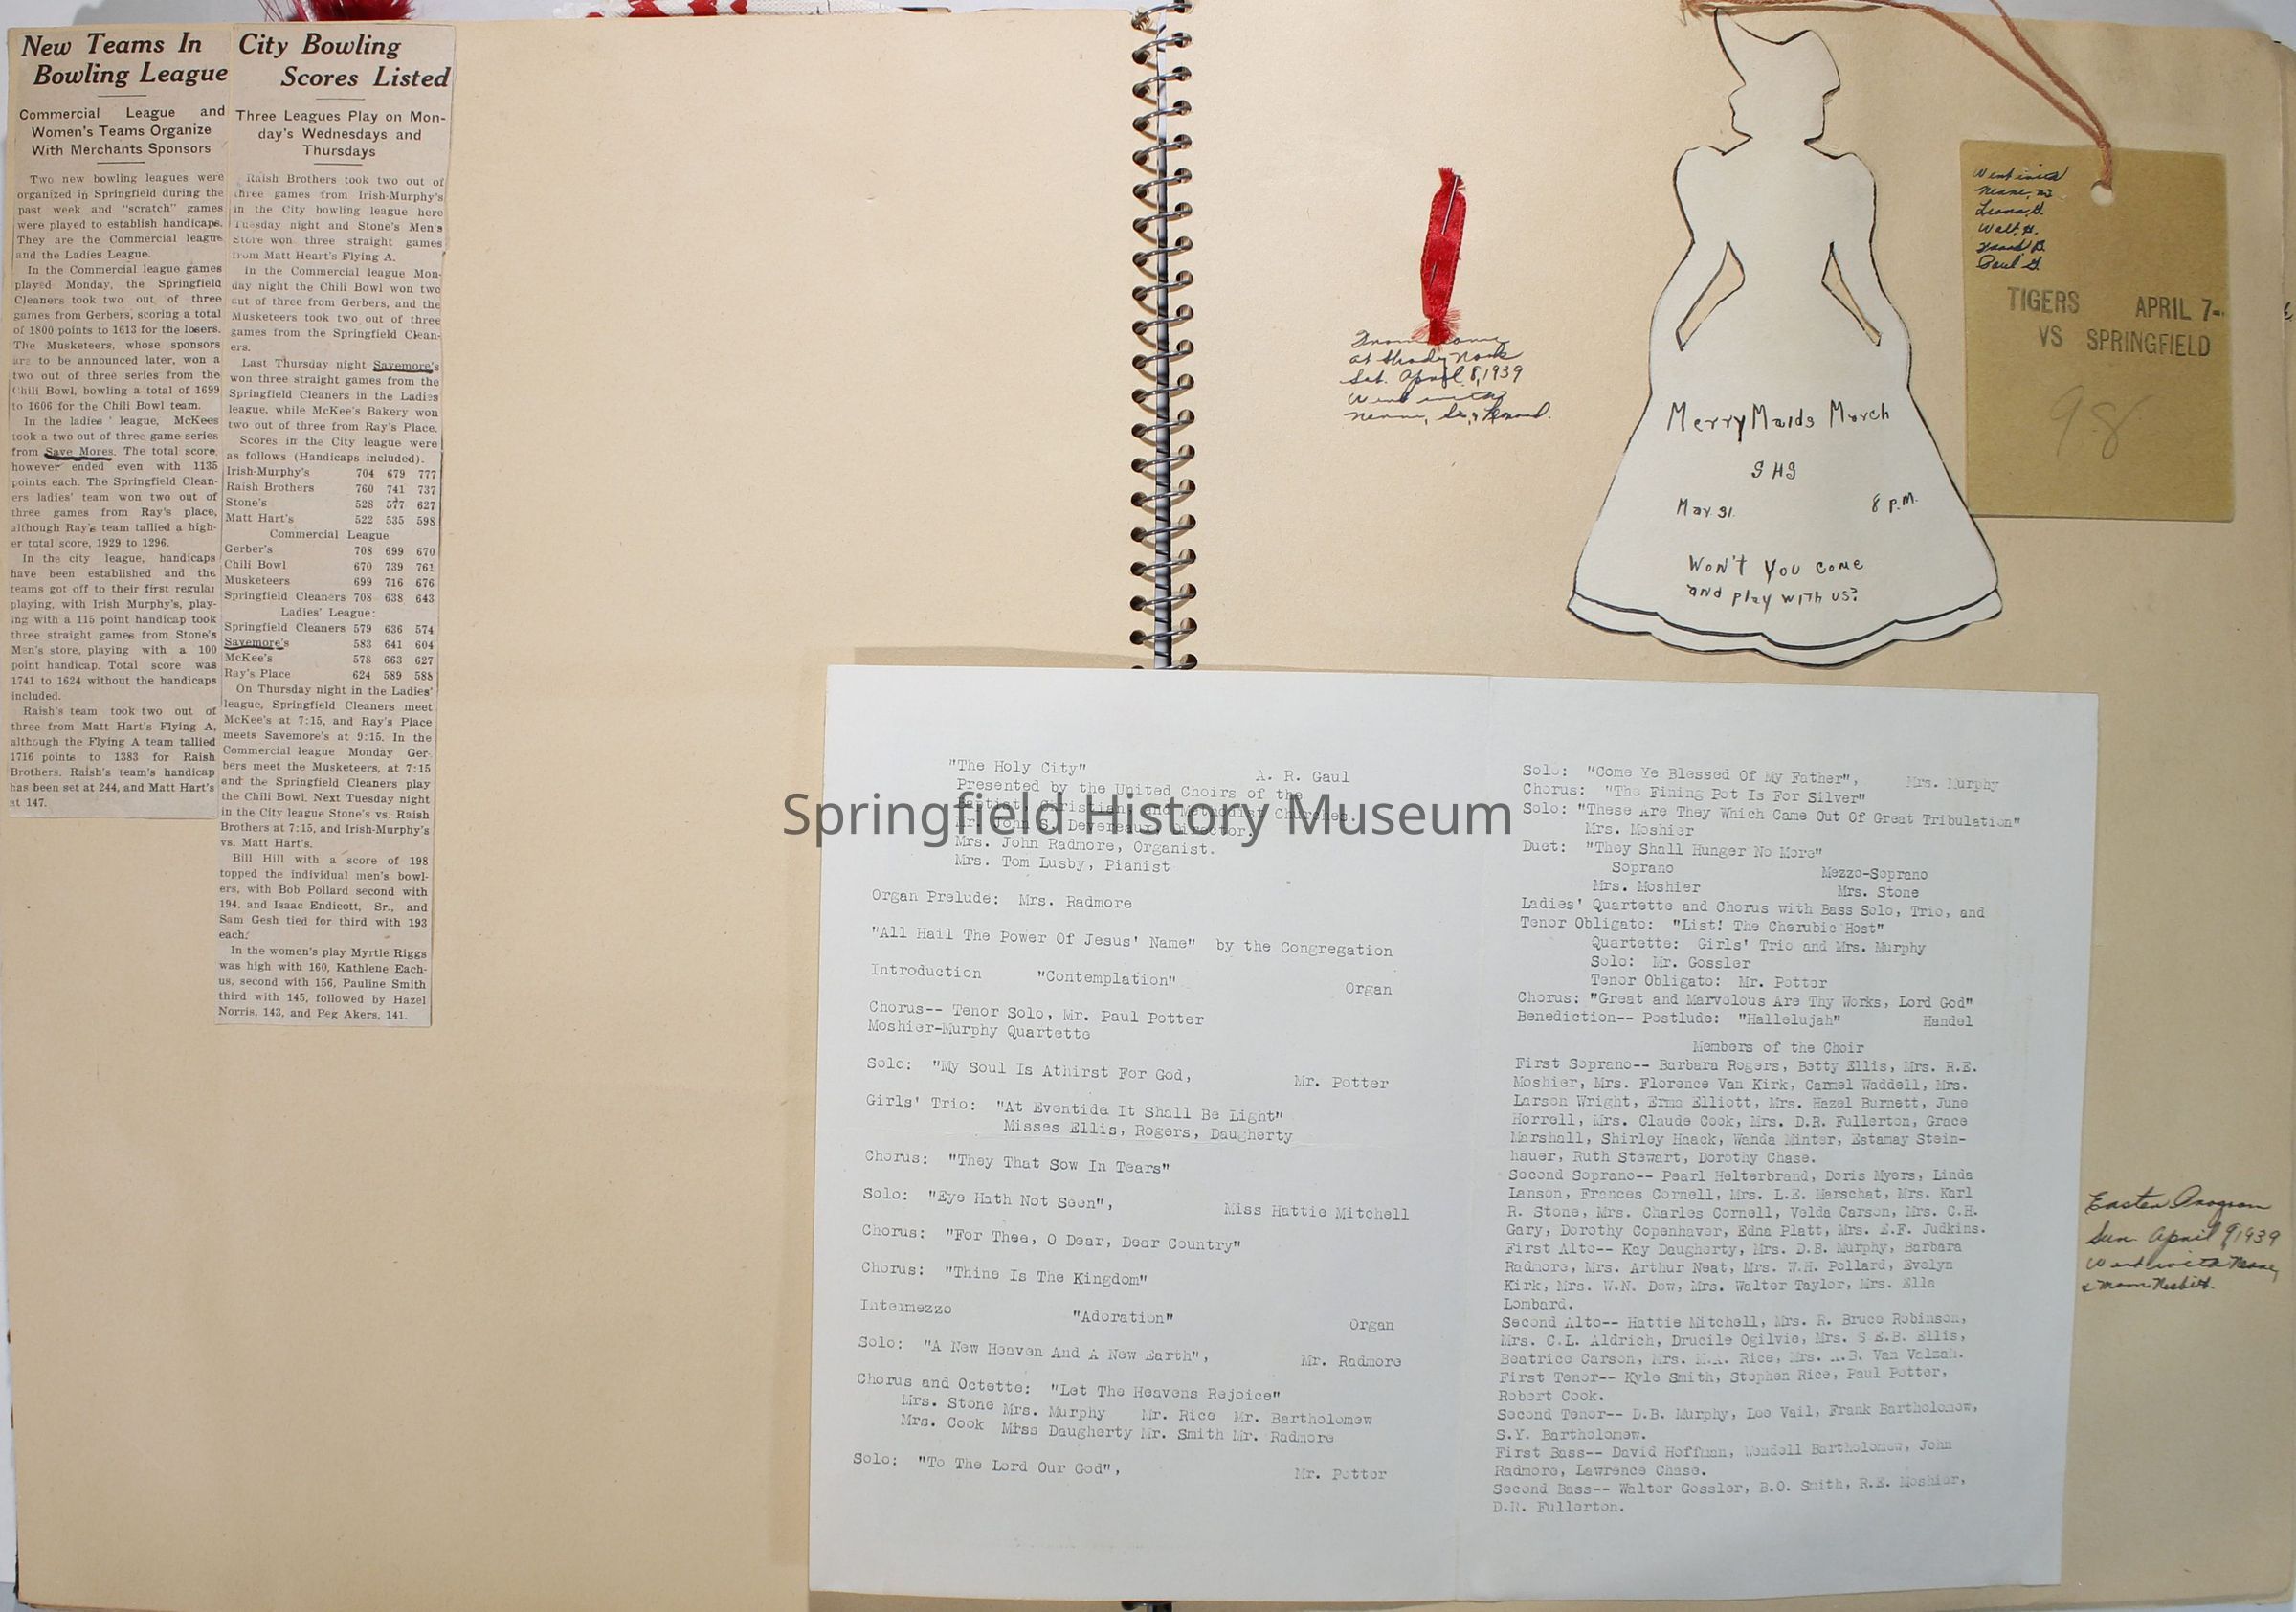 New Teams In
Bowling League
Commercial League and
Women's Teams Organize
With Merchants Sponsors
Two new bowling leagues were
organized in Springfield during the
past week and "scratch" games
were played to establish handicaps.
They are the Commercial league
and the Ladies League.
In the Commercial league games
played Monday, the Springfield
Cleaners took two out of three
games from Gerbers, scoring a total
of 1800 points to 1613 for the losers.
The Musketeers, whose sponsors
are to be announced later, won a
two out of three series from the
Chili Bowl, bowling a total of 1699
to 1606 for the Chili Bowl team.
In the ladies' league, McKees
took a two out of three game series
from Save Mores. The total score,
however ended even with 1135
points each. The Springfield Clean-
ers ladies' team won two out of
three games from Ray's place,
although Ray's team tallied a high-
er total score, 1929 to 1296.
In the city league, handicaps
have been established and the
teams got off to their first regular
playing, with Irish Murphy's, play-
ing with a 115 point handicap took
three straight games from Stone's
Men's store, playing with a 100
point handicap. Total score was
1741 to 1624 without the handicaps
included.
Raish's team took two out of
three from Matt Hart's Flying A,
although the Flying A team tallied
1716 points to 1383 for Raish
Brothers. Raish's team's handicap
has been set at 244, and Matt Hart's
at 147.
City Bowling
Scores Listed
Three Leagues Play on Mon-
day's Wednesdays and
Thursdays
Raish Brothers took two out of
three games from Irish-Murphy's
in the City bowling league here
Tuesday night and Stone's Men's
Store won three straight games
from Matt Heart's Flying A.
In the Commercial league Mon-
day night the Chili Bowl won two
out of three from Gerbers, and the
Musketeers took two out of three
games from the Springfield Clean-
ers.
Last Thursday night Savemore's
won three straight games from the
Springfield Cleaners in the Ladies
league, while McKee's Bakery won
two out of three from Ray's Place.
Scores in the City league were
as follows (Handicaps included).
Irish-Murphy's 704 679 777
Raish Brothers 760 741 737
Stone's 528 577 627
Matt Hart's 522 535 598
Commercial League
Gerber's 708 699 670
Chili Bowl 670 739 761
Musketeers 699 716 676
Springfield Cleaners 708 638 643
Ladies' League:
Springfield Cleaners 579 636 574
Savemore's 583 641 604
McKee's 578 663 627
Ray's Place 624 589 588
On Thursday night in the Ladies'
league, Springfield Cleaners meet
McKee's at 7:15, and Ray's Place
meets Savemore's at 9:15. In the
Commercial league Monday Ger-
bers meet the Musketeers, at 7:15
and the Springfield Cleaners play
the Chili Bowl. Next Tuesday night
in the City league Stone's vs. Raish
Brothers at 7:15, and Irish-Murphy's
vs. Matt Hart's.
Bill Hill with a score of 198
topped the individual men's bowl-
ers, with Bob Pollard second with
194, and Isaac Endicott, Sr., and
Sam Gesh tied for third with 193
each.
In the women's play Myrtle Riggs
was high with 160, Kathlene Each-
us, second with 156, Pauline Smith
third with 145, followed by Hazel
Norris, 143, and Peg Akers, 141.
at Shady Nook
Sat. April 8, 1939
Went with
Merry Maids March
SHS
Mar 31. 8 P.M.
Won't you come
and play with us?
Went with
Leona G.
Walt H.
Paul G.
TIGERS APRIL 7-
VS SPRINGFIELD
98
"The Holy City" A. R. Gaul
Presented by the United Choirs of the
Baptist, Christian, and Methodist Churches.
Mr. John S. Devereaux, Director.
Mrs. John Radmore, Organist.
Mrs. Tom Lusby, Pianist
Organ Prelude: Mrs. Radmore
"All Hail The Power Of Jesus' Name" by the Congregation
Introduction "Contemplation" Organ
Chorus-- Tenor Solo, Mr. Paul Potter
Moshier-Murphy Quartette
Solo: "My Soul Is Athirst For God, Mr. Potter
Girls' Trio: "At Eventide It Shall Be Light"
Misses Ellis, Rogers, Daugherty
Chorus: "They That Sow In Tears"
Solo: "Eye Hath Not Seen", Miss Hattie Mitchell
Chorus: "For Thee, O Dear, Dear Country"
Chorus: "Thine Is The Kingdom"
Intermezzo "Adoration" Organ
Solo: "A New Heaven And A New Earth", Mr. Radmore
Chorus and Octette: "Let The Heavens Rejoice"
Mrs. Stone Mrs. Murphy Mr. Rice Mr. Bartholomew
Mrs. Cook Miss Daugherty Mr. Smith Mr. Radmore
Solo: "To The Lord Our God", Mr. Potter
Solo: "Come Ye Blessed Of My Father", Mrs. Murphy
Chorus: "The Fining Pot Is For Silver"
Solo: "These Are They Which Came Out Of Great Tribulation"
Mrs. Moshier
Duet: "They Shall Hunger No More"
Soprano Mezzo-Soprano
Mrs. Moshier Mrs. Stone
Ladies' Quartette and Chorus with Bass Solo, Trio, and
Tenor Obligato: "List! The Cherubic Host"
Quartette: Girls' Trio and Mrs. Murphy
Solo: Mr. Gossler
Tenor Obligato: Mr. Potter
Chorus: "Great and Marvelous Are Thy Works, Lord God"
Benediction-- Postlude: "Hallelujah" Handel
Members of the Choir
First Soprano-- Barbara Rogers, Betty Ellis, Mrs. R.E.
Moshier, Mrs. Florence Van Kirk, Carmel Waddell, Mrs.
Larson Wright, Erma Elliott, Mrs. Hazel Burnett, June
Horrell, Mrs. Claude Cook, Mrs. D.R. Fullerton, Grace
Marshall, Shirley Haack, Wanda Minter, Estamay Stein-
hauer, Ruth Stewart, Dorothy Chase.
Second Soprano-- Pearl Helterbrand, Doris Myers, Linda
Lanson, Frances Cornell, Mrs. L.E. Marschat, Mrs. Karl
R. Stone, Mrs. Charles Cornell, Velda Carson, Mrs. C.H.
Gary, Dorothy Copenhaver, Edna Platt, Mrs. E.F. Judkins.
First Alto-- Kay Daugherty, Mrs. D.B. Murphy, Barbara
Radmore, Mrs. Arthur Neat, Mrs. W.H. Pollard, Evelyn
Kirk, Mrs. W.N. Dow, Mrs. Walter Taylor, Mrs. Ella
Lombard.
Second Alto-- Hattie Mitchell, Mrs. R. Bruce Robinson,
Mrs. C.L. Aldrich, Drucile Ogilvie, Mrs. S.E.B. Ellis,
Beatrice Carson, Mrs. Rice, Mrs. Van Valzah.
First Tenor-- Kyle Smith, Stephen Rice, Paul Potter,
Robert Cook.
Second Tenor-- D.B. Murphy, Lee Vail, Frank Bartholomew,
S.Y. Bartholomew.
First Bass-- David Hoffman, Wendell Bartholomew, John
Radmore, Lawrence Chase.
Second Bass-- Walter Gossler, B.O. Smith, R.E. Moshier,
D.R. Fullerton.
Easter Program
Sun. April 9, 1939
Went with
& Mom Nesbit.
Springfield History Museum